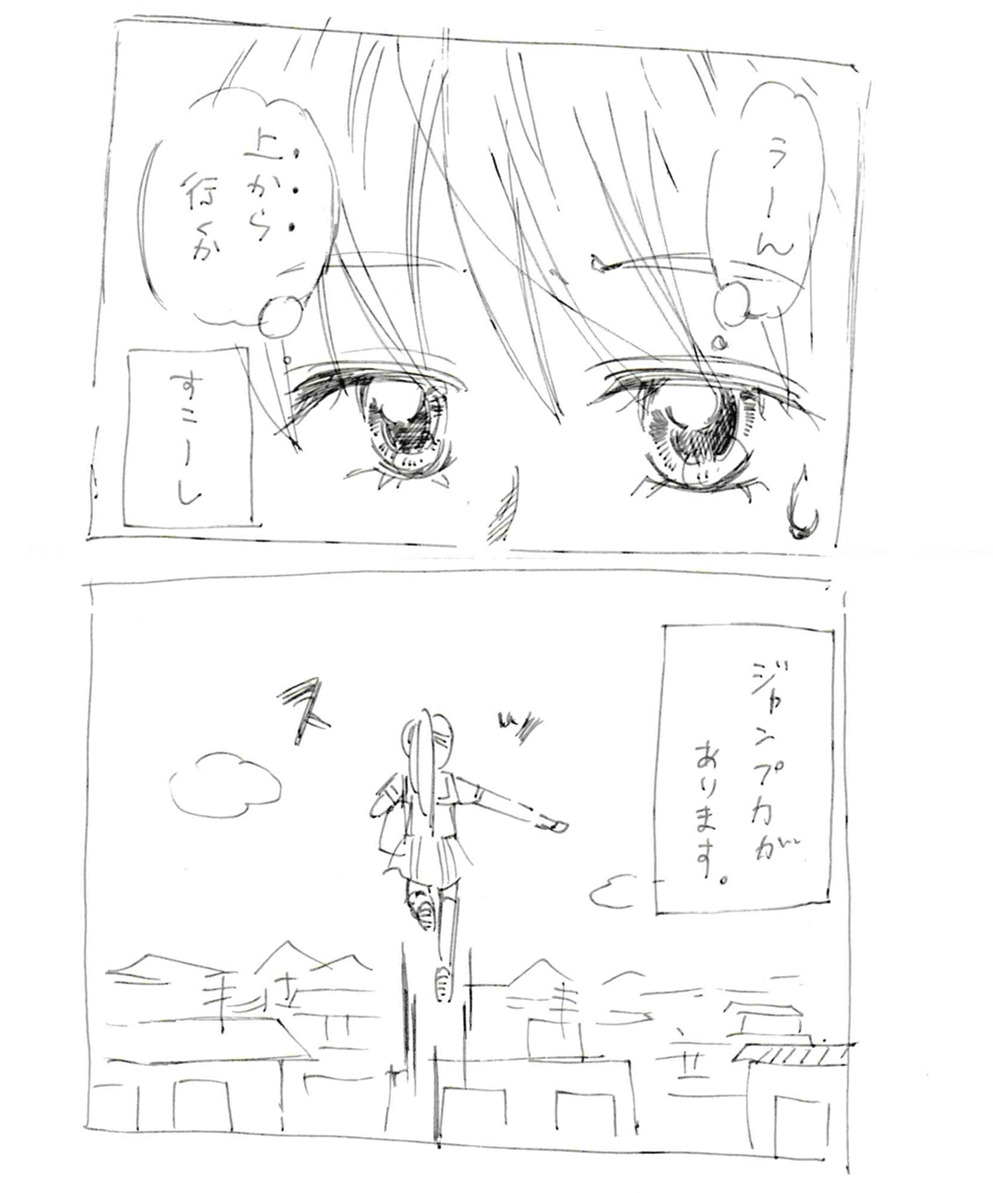 うーん
上から
行くか
すこーし
ジャンプ力が
あります。
スッ